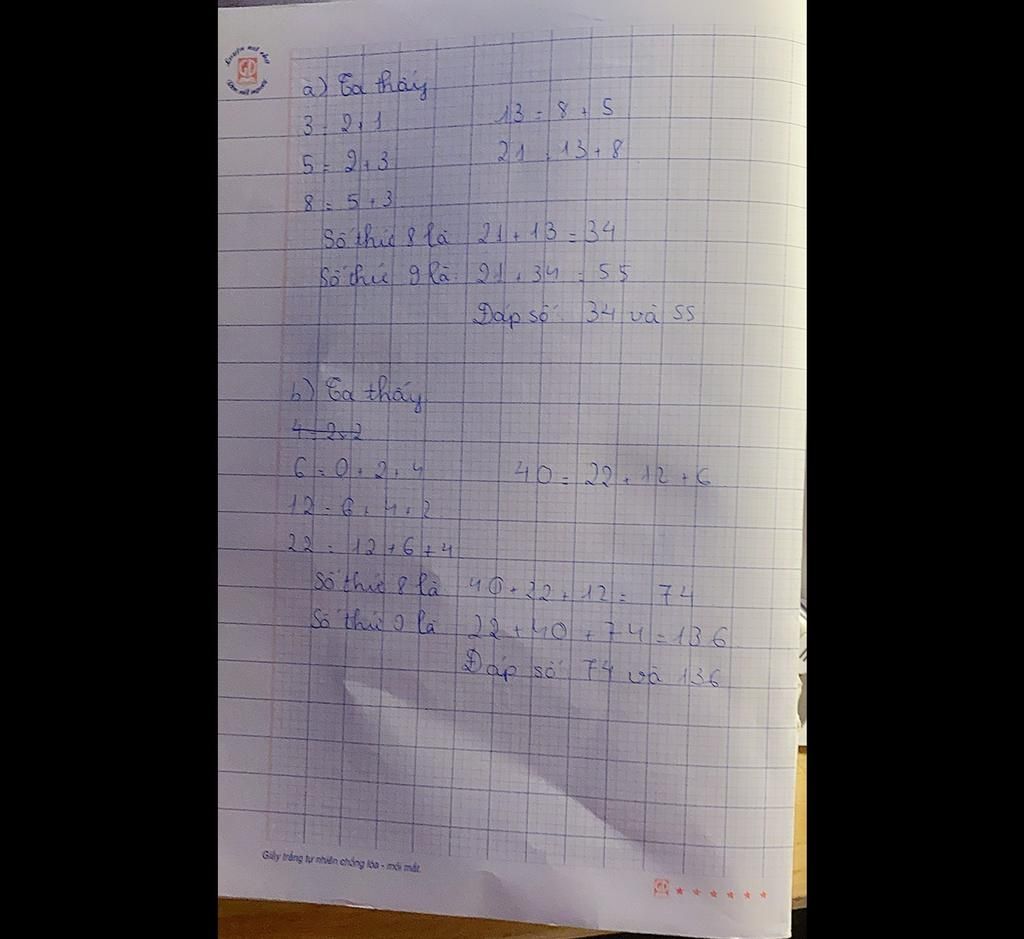 Luyện nét chữ
Rèn nết người
GD
a) Ta thấy
3 = 2 + 1 13 = 8 + 5
5 = 2 + 3 21 = 13 + 8
8 = 5 + 3
Số thứ 8 là 21 + 13 = 34
Số thứ 9 là: 21 + 34 = 55
Đáp số: 34 và 55
b) Ta thấy
4 = 2 + 2
6 = 0 + 2 + 4 40 = 22 + 12 + 6
12 = 6 + 4 + 2
22 = 12 + 6 + 4
Số thứ 8 là 40 + 22 + 12 = 74
Số thứ 9 là 22 + 40 + 74 = 136
Đáp số: 74 và 136
Giấy trắng tự nhiên chống lóa - mỏi mắt.
GD